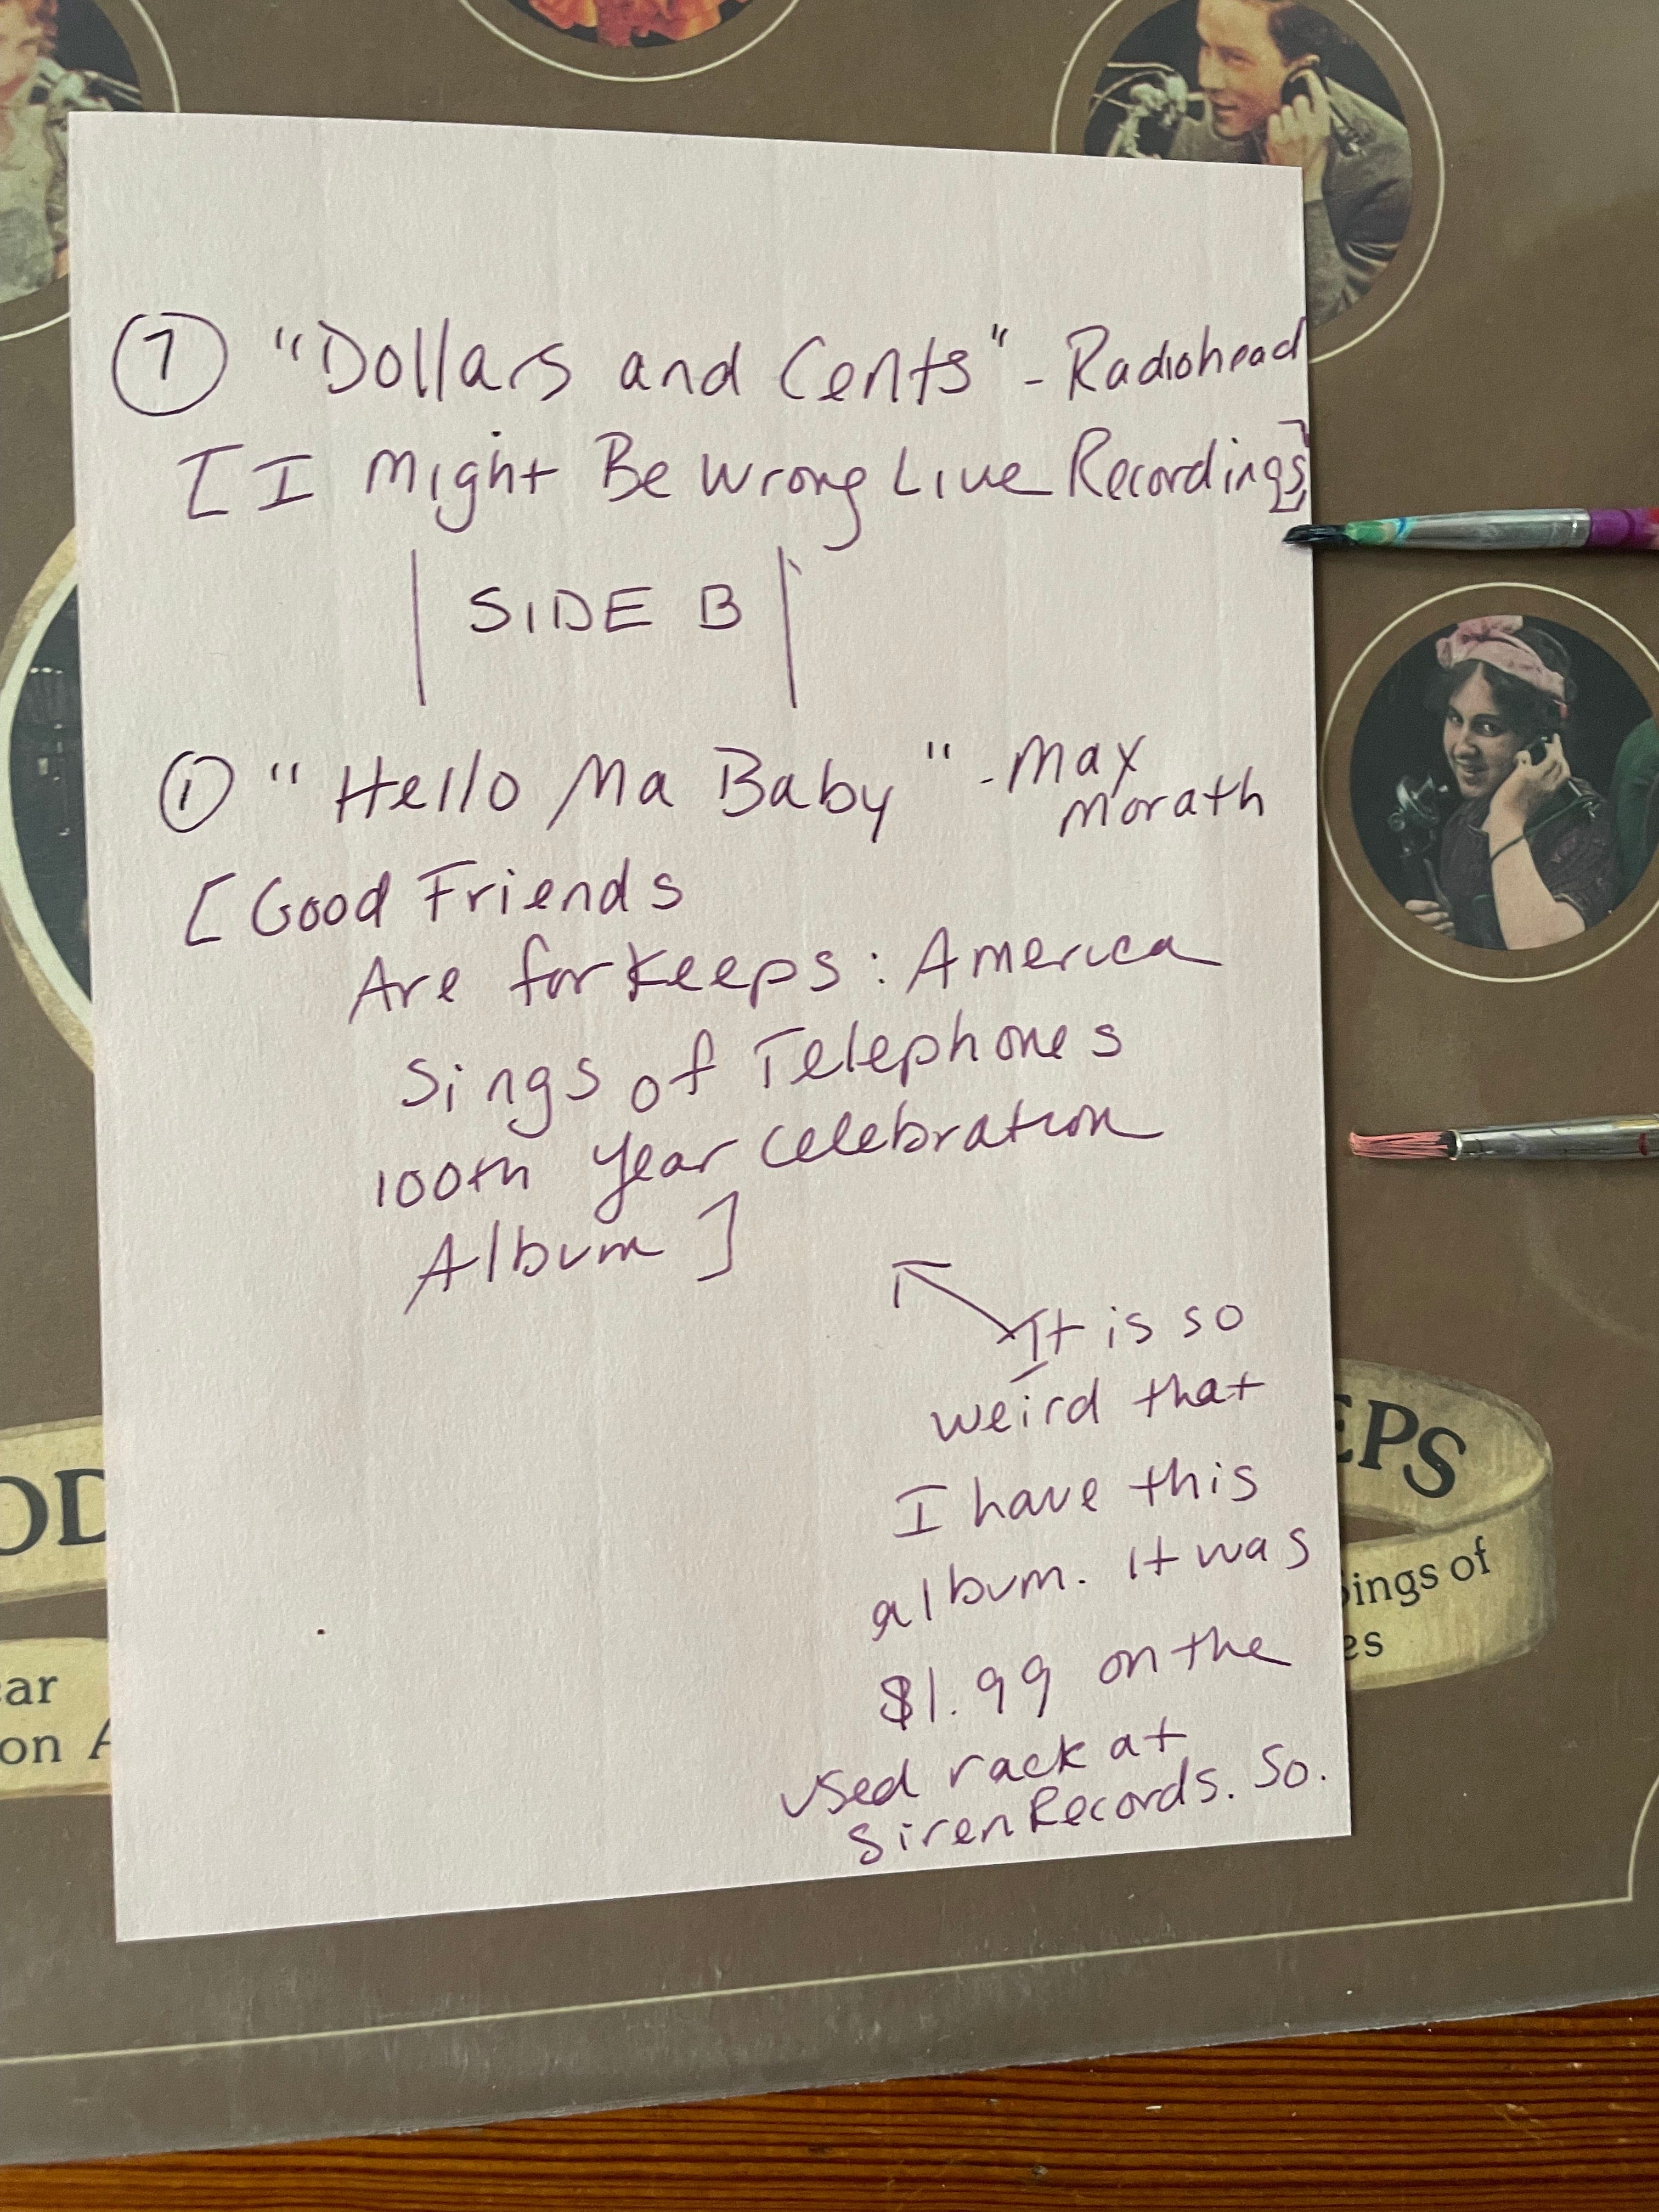 ⑦ "Dollars and Cents" - Radiohead
[I Might Be Wrong Live Recordings]
| SIDE B |
① "Hello Ma Baby" - Max
Morath
[Good Friends
Are for Keeps: America
Sings of Telephones
100th Year Celebration
Album]
It is so
weird that
I have this
album. It was
$1.99 on the
used rack at
Siren Records. So.
OD
EPS
Sings of
es
ear
on A